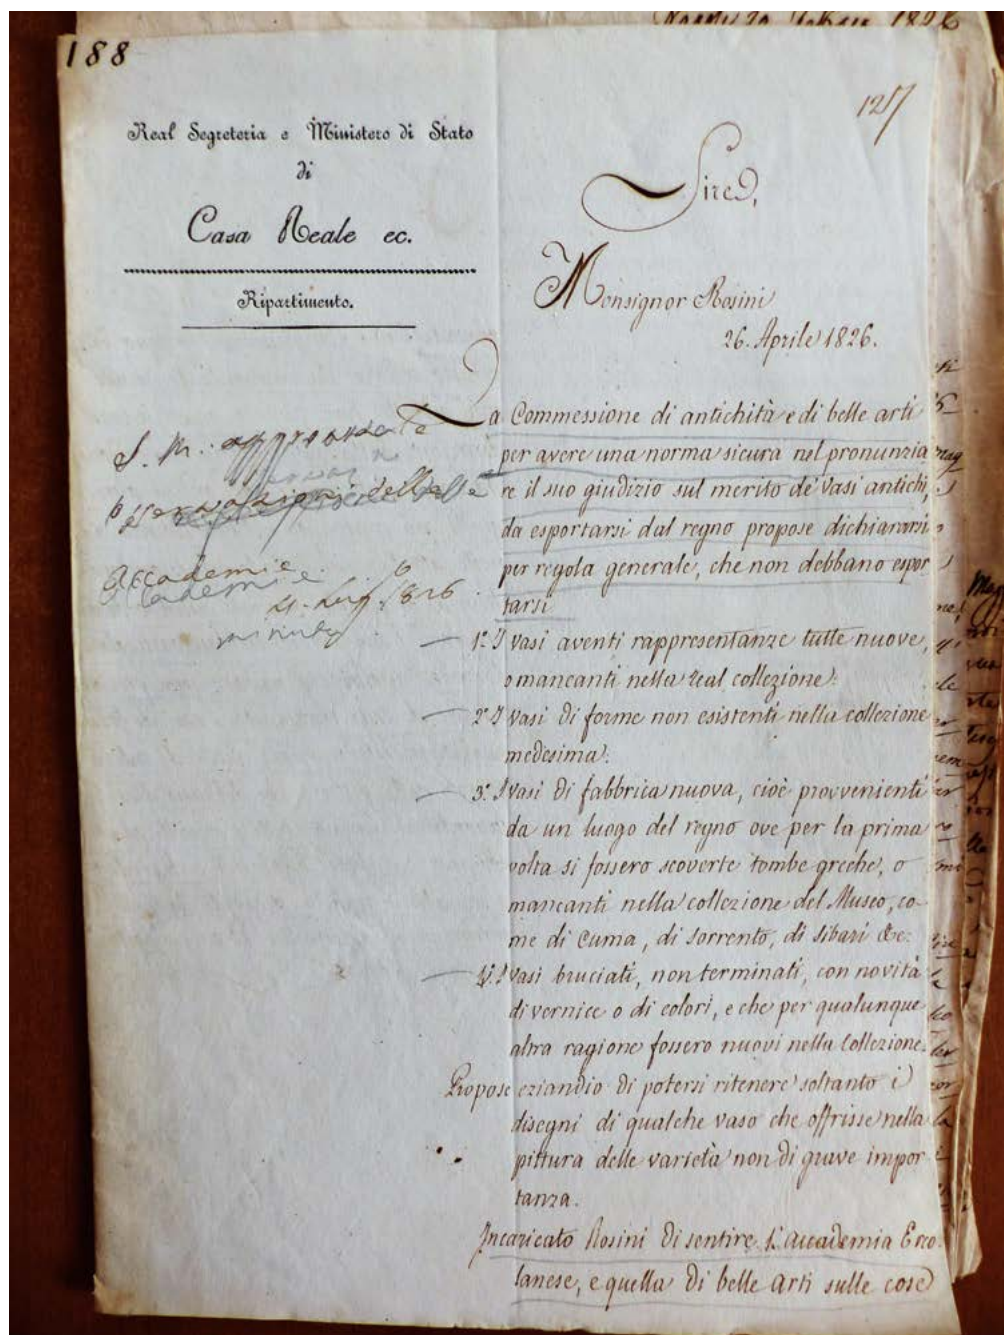 188
1257
Real Segreteria e Ministero di Stato
di
Casa Reale ec.
Ripartimento.
Sire,
Monsignor Rosini
26. Aprile 1826.
S. M. approvate
le
osservazioni delle
Accademie
Accademie.
1826
La Commessione di antichità e di belle arti
per avere una norma sicura nel pronunzia
re il suo giudizio sul merito de' vasi antichi,
da esportarsi dal regno propose dichiararsi
per regola generale, che non debbano espor
tarsi
1.° I vasi aventi rappresentanze tutte nuove,
o mancanti nella real collezione.
2.° I vasi di forme non esistenti nella collezione
medesima.
3.° I vasi di fabbrica nuova, cioè provvenienti
da un luogo del regno ove per la prima
volta si fossero scoverte tombe greche, o
mancanti nella collezione del Museo, co-
me di Cuma, di Sorrento, di Sibari &c.
4.° I vasi bruciati, non terminati, con novità
di vernice o di colori, e che per qualunque
altra ragione fossero nuovi nella Collezione.
Propose eziandio di potersi ritenere soltanto i
disegni di qualche vaso che offrisse nella
pittura delle varietà non di grave impor
tanza.
Incaricato Rosini di sentire l'accademia Erco
lanese, e quella di belle arti sulle cose